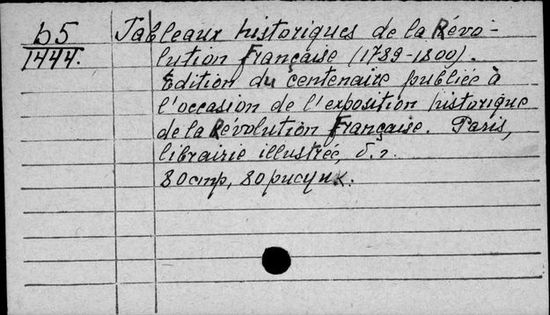 b5
1444.
Tableaux historiques de la Révo-
lution Française (1789-1800).
Edition du centenaire publiée à
l'occasion de l'exposition historique
de la Révolution Française. Paris,
librairie illustrée, б.г.
80стр, 80рисунк.